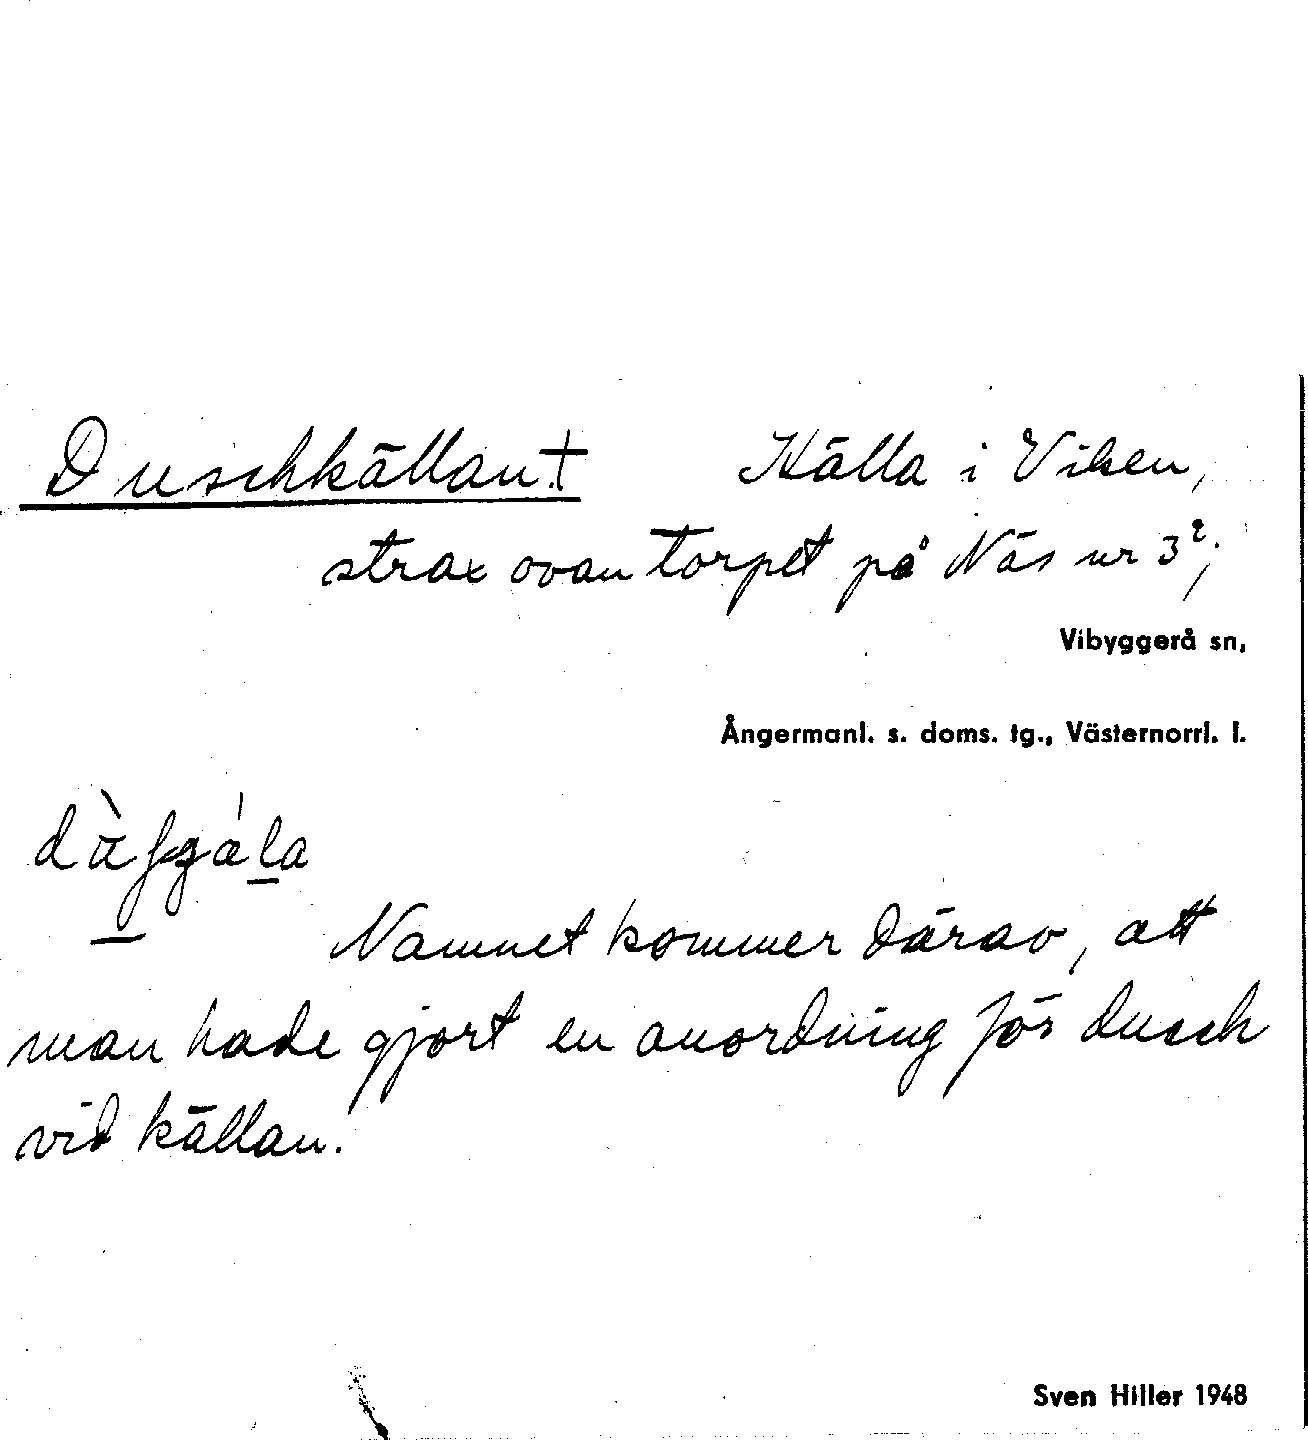 Duschkällan † Källa i Viken,
strax ovan torpet på Näs nr 3²;
Vibyggerå sn,
Ångermanl. s. doms. tg., Västernorrl. l.
Namnet kommer därav, att
man hade gjort en anordning för dusch
vid källan.
Sven Hiller 1948